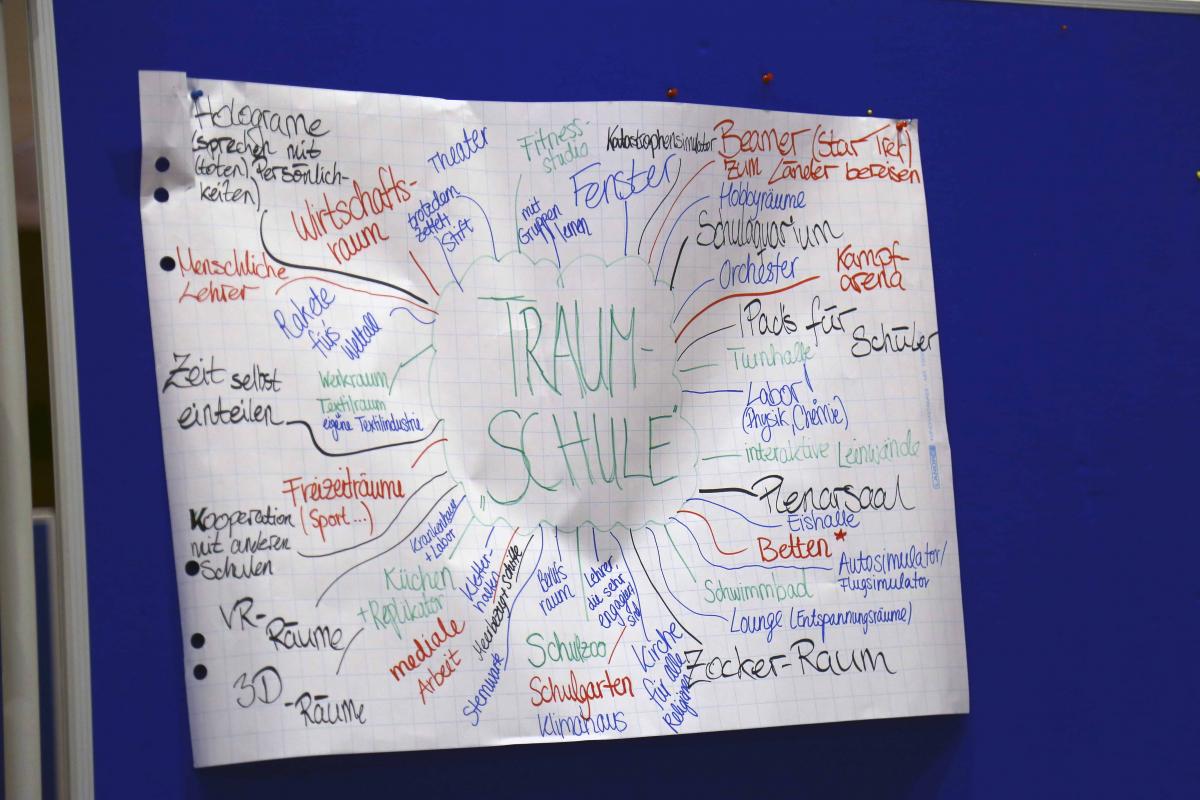 Holograme
(sprechen mit
(toten) Persönlich-
keiten)
Wirtschafts-
raum
Theater
trotzdem
Zettel+
Stift
Fitness-
studio
mit
Gruppen
lernen
Fenster
Katastrophensimulator
Beamer (Star Tref)
zum Länder bereisen
Hobbyräume
Schulaquarium
Orchester
Kampf
arena
IPads für
Schüler
Turnhalle
Labor!
(Physik, Chemie)
interaktive Leinwände
Plenarsaal
Eishalle
Betten *
Autosimulator/
Flugsimulator
Schwimmbad
Lounge (Entspannungsräume)
Zocker-Raum
Menschliche
Lehrer
Rakete
für's
Weltall
Zeit selbst
einteilen
Werkraum
Textilraum
eigene Textilindustrie
"TRAUM-
SCHULE"
Freizeiträume
(Sport...)
Kooperation
mit anderen
Schulen
VR-
Räume
3D
-Räume
Krankenhaus
+ Labor
Küchen
+ Replikator
mediale
Arbeit
Kletter-
hallen
Sternwarte
raum
Lehrer,
die sehr
engagiert
sind
Schulzoo
Schulgarten
Klimahaus
Kirche
für alle
Religionen